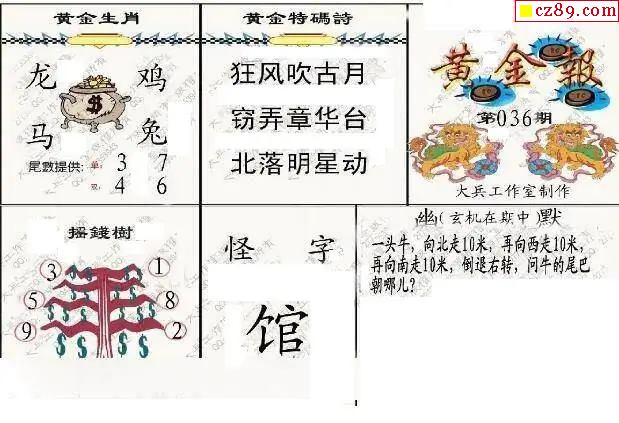 cz89.com
黄金生肖
龙 鸡
马 兔
尾數提供: 单: 3 7
双: 4 6
黄金特碼詩
狂风吹古月
窃弄章华台
北落明星动
黄金報
第036期
大兵工作室制作
摇錢樹
3 1
5 8
9 2
怪 字
馆
幽(玄机在其中)默
一头牛，向北走10米，再向西走10米，
再向南走10米，倒退右转，问牛的尾巴
朝哪儿?